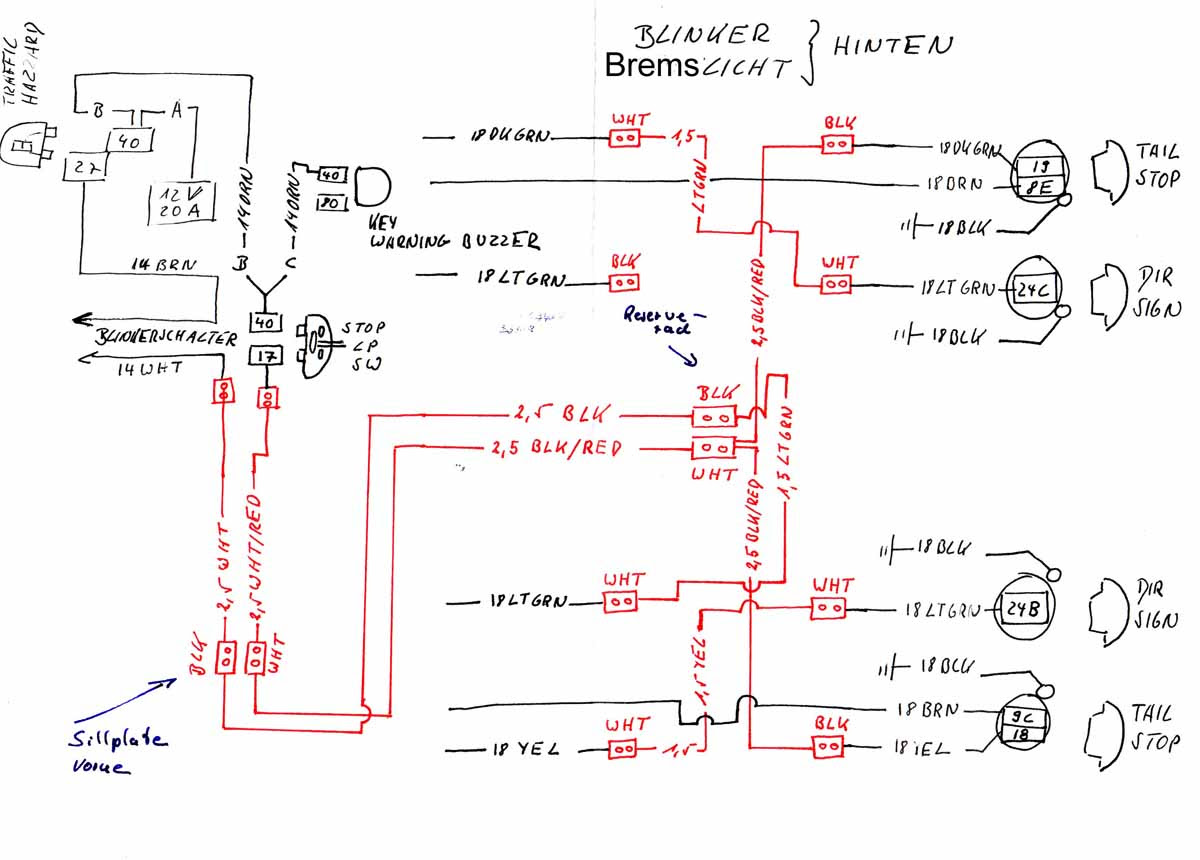 BLINKER
BremsLICHT
HINTEN
TRAFFIC
HAZZARD
B
A
40
27
12V
20A
14 ORN
14 ORN
B
C
40
80
KEY
WARNING BUZZER
14 BRN
BLINKERSCHALTER
14 WHT
40
17
STOP
LP
SW
18 DK GRN
WHT
1,5
LT GRN
BLK
18DKGRN
19
8E
TAIL
STOP
18 BRN
18 BLK
18 LT GRN
BLK
2,5 BLK/RED
WHT
18 LT GRN
24C
DIR
SIGN
18 BLK
Reserve-
rad
2,5 BLK
BLK
2,5 BLK/RED
WHT
1,5 LT GRN
2,5 BLK/RED
2,5 WHT
2,5 WHT/RED
BLK
WHT
Sillplate
vorne
18 LT GRN
WHT
WHT
18 BLK
18 LT GRN
24B
DIR
SIGN
1,5 YEL
18 BLK
18 BRN
9C
18
TAIL
STOP
18 YEL
WHT
1,5
BLK
18 YEL